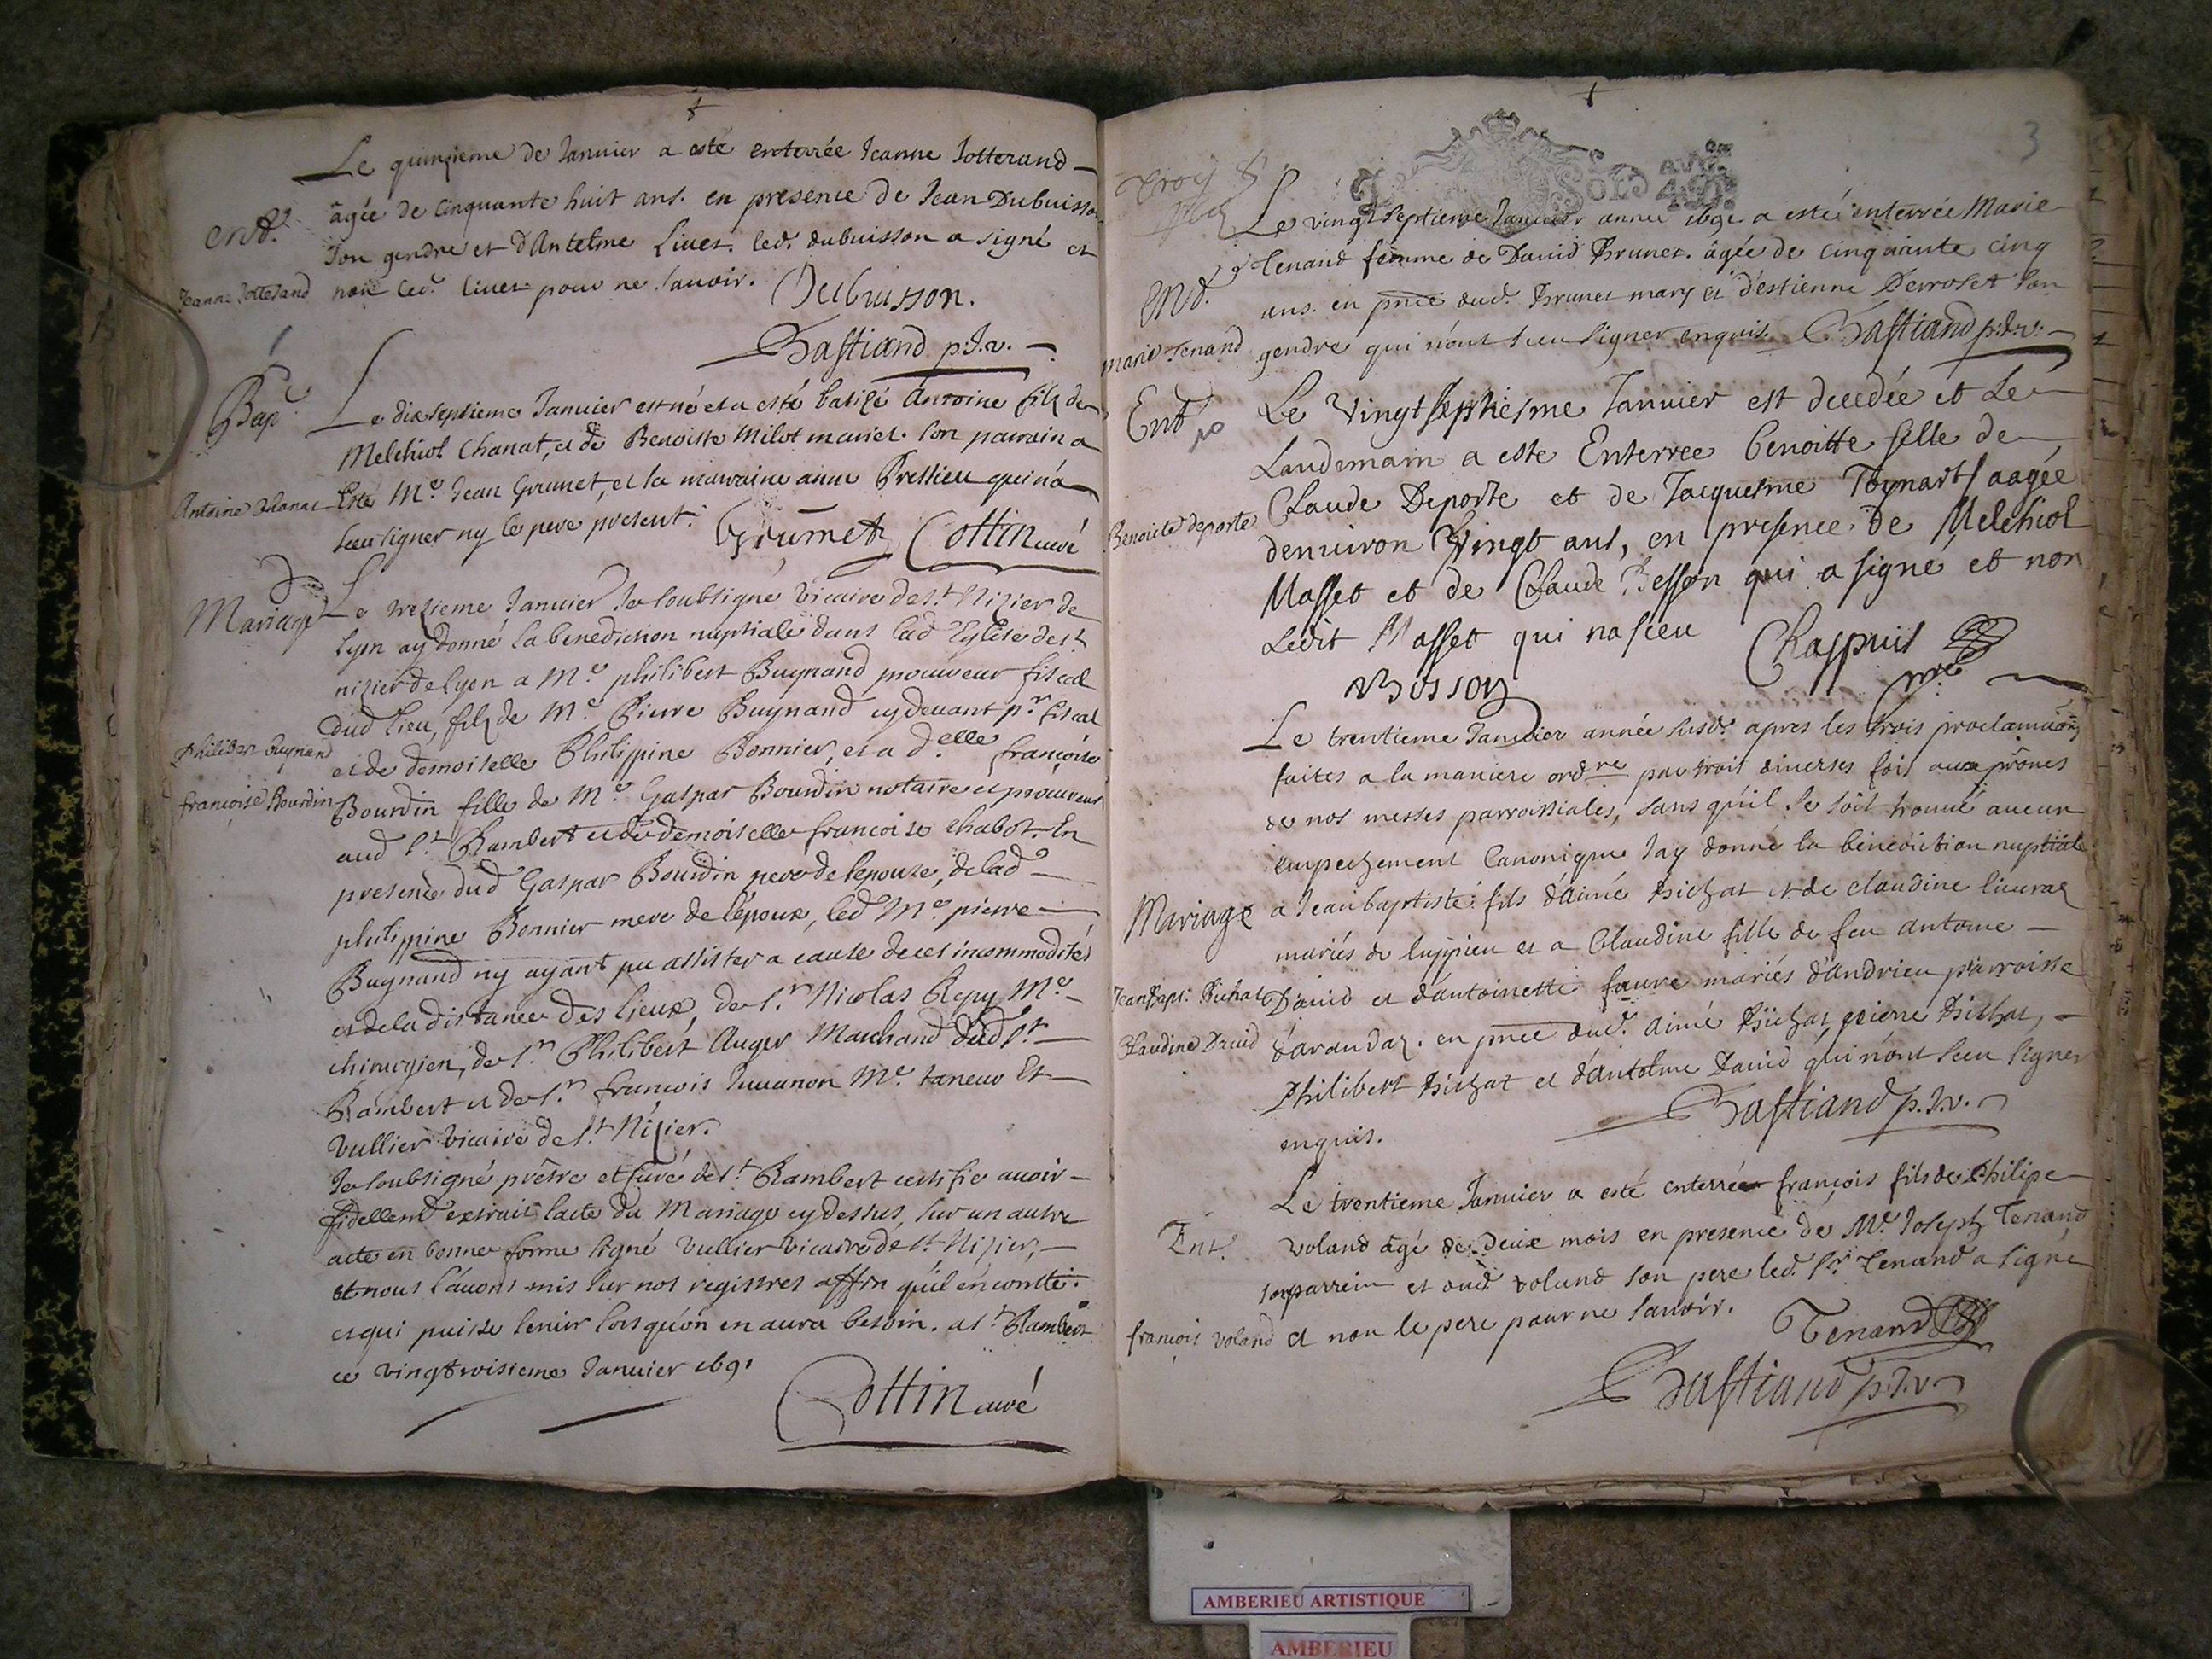 Le quinzieme de Janvier a esté enterrée Jeanne Jotterand
âgée de cinquante huit ans. en presence de Jean Dubuisson
son gendre et d'Antelme Livet. led. dubuisson a signé et
non led. livet pour ne savoir. Dubuisson.
Ent.
Jeanne Jotterand
Bastiand p.J.v.
Bap.
Le dixseptieme Janvier est né et a esté batizé Antoine filz de
Melchiol Chanat, et de Benoiste Milot mariez. son parrain a
Antoine Chanat
esté Me. Jean Grumet, et la marraine anne Pressieu qui n'a
sceu signer ny le pere present. Grumet Cottin curé
Mariage
Le trezieme Janvier Je soubsigné vicaire de st. Nizier de
Lyon ay donné la benediction nuptiale dans lad. Eglise de st.
nizier de lyon a Me. philibert Buynand procureur fiscal
dud. lieu, filz de Me. Pierre Buynand cy devant pr. fiscal
Philibert Buynand
et de demoiselle Philippine Bonnier, et a delle françoise
françoise Bourdin
Bourdin fille de Me. Gaspar Bourdin notaire et procureur
aud. st. Rambert et de demoiselle françoise chabot. En
presence dud. Gaspar Bourdin pere de lepouse, de lad.
philippine Bonnier mere de l'époux, led. Me. pierre
Buynand ny ayant pu assister a cause de ces incommodités
et de la distance des lieux, de sr. Nicolas Repy Me.
chirurgien, de sr. Philibert Auger Marchand dud. st.
Rambert et de sr. françois Juvanon Me. taneur Et
Vullier vicaire de st. Nizier.
Je soubsigné prêtre et curé de st. Rambert certifie avoir
fidellemt. extrait lacte du Mariage cy dessus, sur un autre
acte en bonne forme signé Vullier vicaire de st. Nizier,
et nous l'avons mis sur nos registres affin qu'il en conste.
et qui puisse servir lors qu'on en aura besoin. a st. Rambert
ce vingttroisieme Janvier 1691
Cottin curé
3
Le vingt septieme Janvier année 1691 a esté enterrée Marie
Tenand femme de David Brunet. âgée de cinquante cinq
Ent.
ans. en pnce dud. Brunet mary et d'estienne Derroset son
marie Tenand
gendre qui n'ont sceu signer enquis. Bastiand p.J.v.
Ent
Le Vingt septiesme Janvier est decedée et Le
Landemain a este Enterree benoitte fille de
Claude Deporte et de Jacquesme Toynart aagée
Benoitte deporte
denviron Vingt ans, en presence de Melchiol
Masset et de Claude Besson qui a signé et non
Ledit Masset qui na sceu Chappuis
Bosson
Le trentieme Janvier année susd. apres les trois proclamaons
faites a la maniere ordre par trois diverses fois aux prônes
de nos messes parroissiales, sans qu'il se soit trouvé aucun
empechement Canonique J'ay donné la benediction nuptiale
Mariage
a Jean baptiste fils d'aimé Bichat et de claudine livraz
mariés de luppieu et a Claudine fille de feu antoine
Jean Bapt. Bichat
David et d'antoinette favre mariés d'andrieu parroisse
Claudine David
d'arandaz. en pnce dud. aimé Bichat, pierre Bichat,
Philibert Bichat et d'antelme David qui n'ont sceu signer
enquis.
Bastiand p.J.v.
Le trentieme Janvier a esté enterré françois fils de Philipe
Ent.
Voland âgé de deux mois en presence de Me. Joseph Tenand
son parrein et dud. voland son pere led. sr. Tenand a signé
françois Voland
et non le pere pour ne savoir. Tenand
Bastiand p.J.v.
AMBERIEU ARTISTIQUE
AMBERIEU